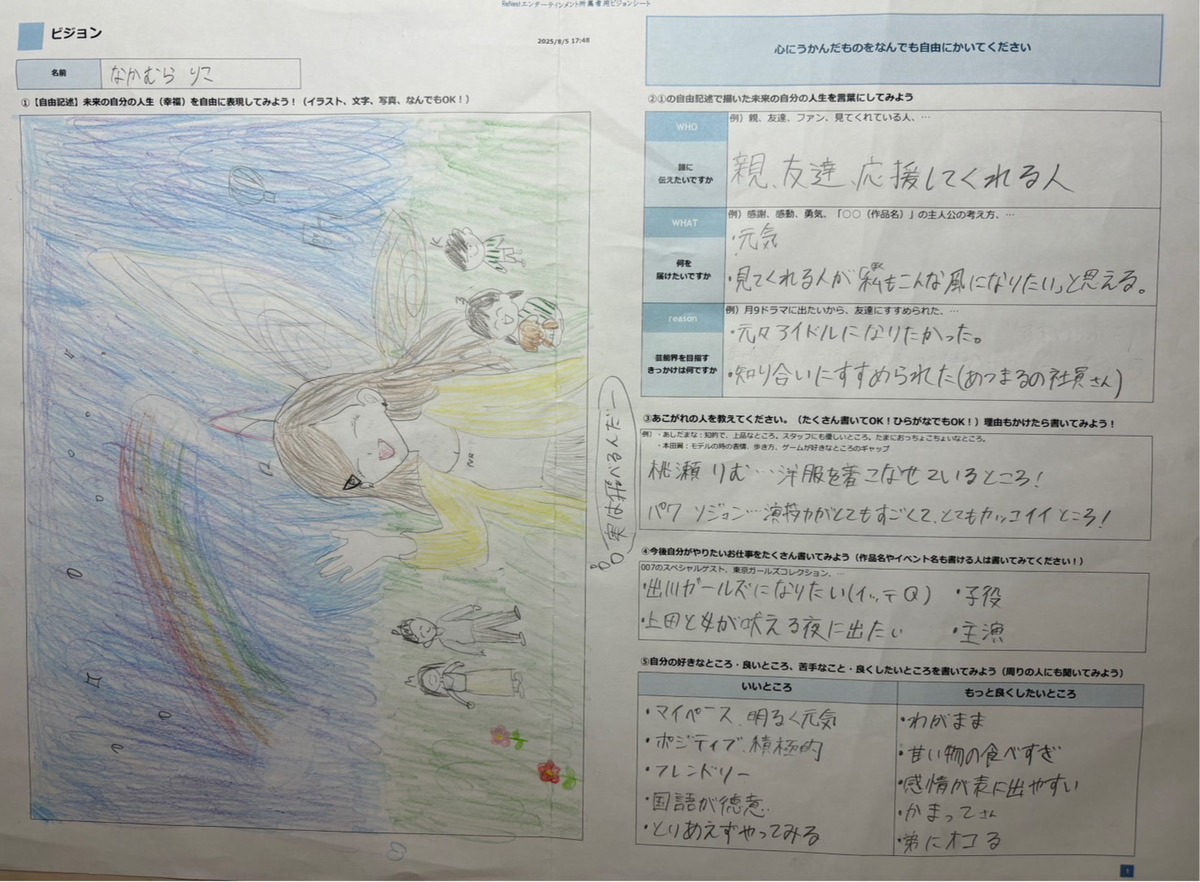 ReNestエンターテインメント所属者用ビジョンシート
ビジョン
2025/8/5 17:48
名前
なかむら りこ
①【自由記述】未来の自分の人生（幸福）を自由に表現してみよう！（イラスト、文字、写真、なんでもOK！）
心にうかんだものをなんでも自由にかいてください
②①の自由記述で描いた未来の自分の人生を言葉にしてみよう
WHO
誰に
伝えたいですか
例）親、友達、ファン、見てくれている人、…
親、友達、応援してくれる人
WHAT
何を
届けたいですか
例）感謝、感動、勇気、「○○（作品名）」の主人公の考え方、…
・元気
・見てくれる人が「私もこんな風になりたい」と思える。
ぼく
reason
芸能界を目指す
きっかけは何ですか
例）月9ドラマに出たいから、友達にすすめられた、…
・元々アイドルになりたかった。
・知り合いにすすめられた(あつまるの社員さん)
③あこがれの人を教えてください。（たくさん書いてOK！ひらがなでもOK！）理由もかけたら書いてみよう！
例）・あしだまな：知的で、上品なところ。スタッフにも優しいところ。たまにおっちょこちょいなところ。
・本田翼：モデルの時の表情、歩き方、ゲームが好きなところのギャップ
桃瀬 りむ…洋服を着こなせているところ！
パク ソジュン…演技力がとてもすごくて、とてもカッコイイところ！
④今後自分がやりたいお仕事をたくさん書いてみよう（作品名やイベント名も書ける人は書いてみてください！）
007のスペシャルゲスト、東京ガールズコレクション、…
・出川ガールズになりたい(イッテQ) ・子役
・上田と女が吠える夜に出たい ・主演
⑤自分の好きなところ・良いところ、苦手なこと・良くしたいところを書いてみよう（周りの人にも聞いてみよう）
いいところ
もっと良くしたいところ
・マイペース、明るく元気
・ポジティブ、積極的
・フレンドリー
・国語が得意
・とりあえずやってみる
・わがまま
・甘い物の食べすぎ
・感情が表に出やすい
・かまってさん
・弟にオコる
1